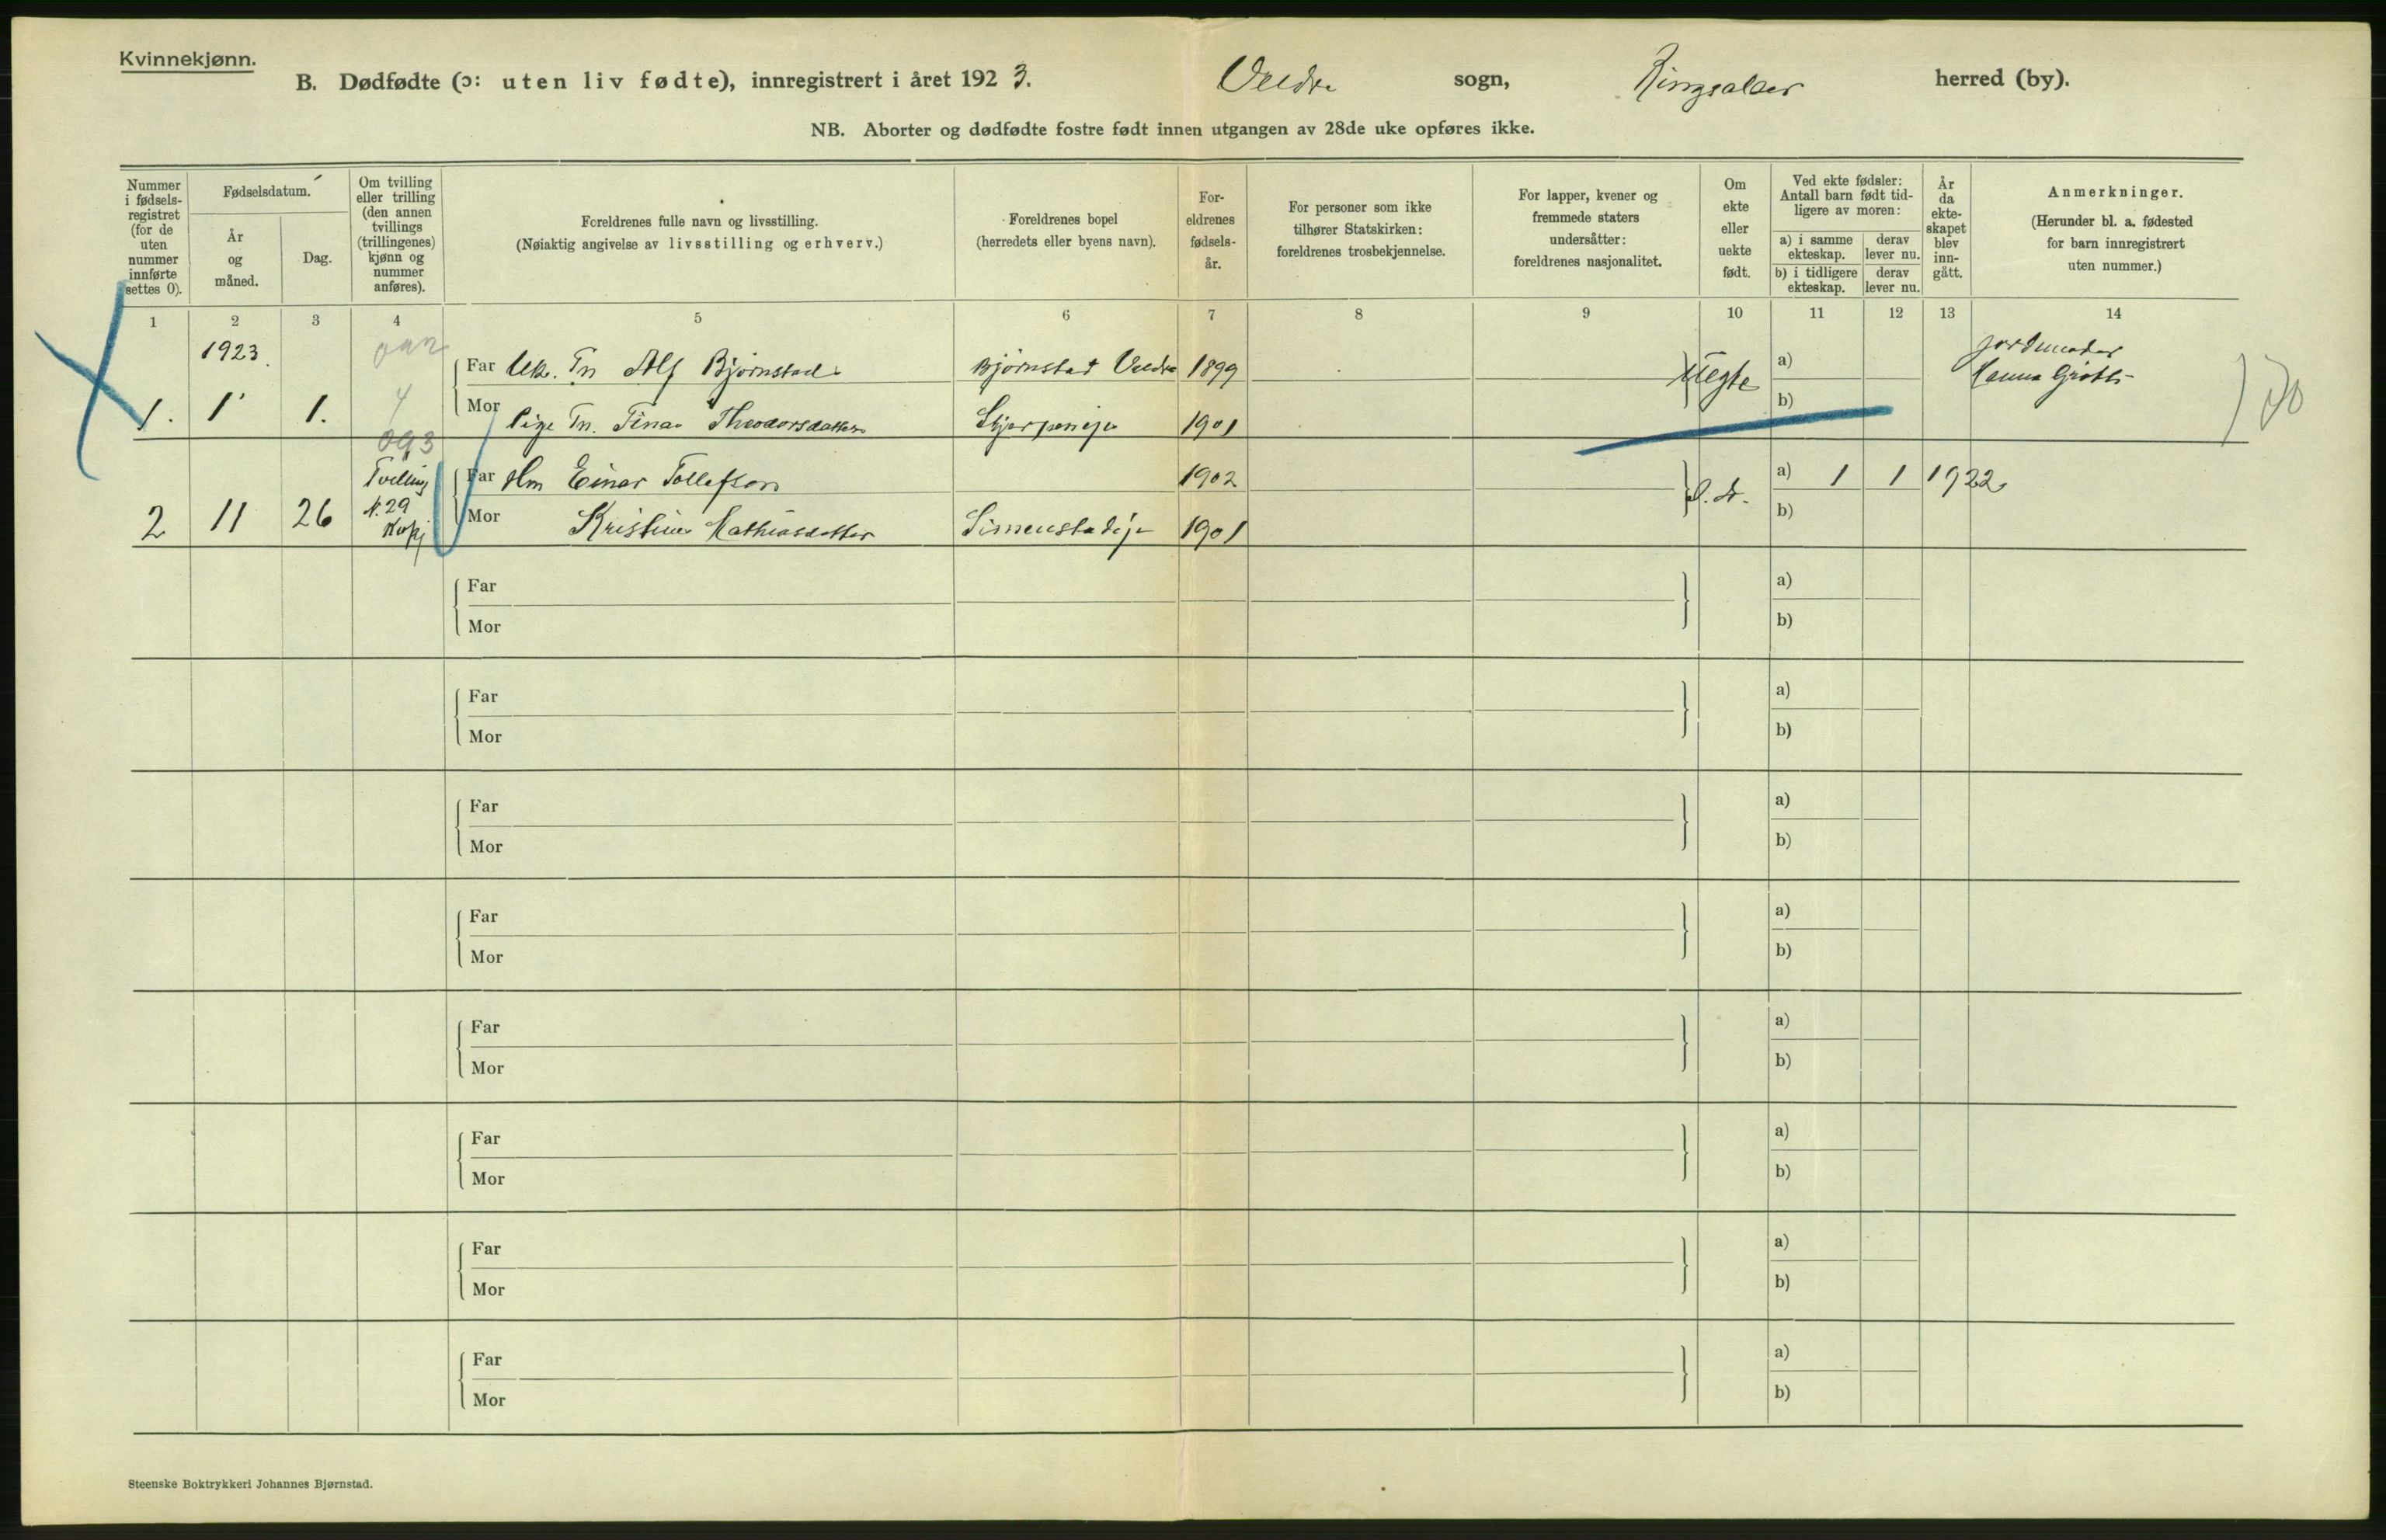 Kvinnekjønn.
B. Dødfødte (ɔ: uten liv fødte), innregistrert i året 1923. Veldre sogn, Ringsaker herred (by).
NB. Aborter og dødfødte fostre født innen utgangen av 28de uke opføres ikke.
Nummer i fødselsregistret (for de uten nummer innførte settes 0).
Fødselsdatum.
År og måned.
Dag.
Om tvilling eller trilling (den annen tvillings (trillingenes) kjønn og nummer anføres).
Foreldrenes fulle navn og livsstilling.
(Nøiaktig angivelse av livsstilling og erhverv.)
Foreldrenes bopel
(herredets eller byens navn).
Foreldrenes fødselsår.
For personer som ikke tilhører Statskirken: foreldrenes trosbekjennelse.
For lapper, kvener og fremmede staters undersåtter: foreldrenes nasjonalitet.
Om ekte eller uekte født.
Ved ekte fødsler: Antall barn født tidligere av moren:
a) i samme ekteskap.
derav lever nu.
b) i tidligere ekteskap.
derav lever nu.
År da ekteskapet blev inngått.
Anmerkninger.
(Herunder bl. a. fødested for barn innregistrert uten nummer.)
1 2 3 4 5 6 7 8 9 10 11 12 13 14
1923
Far Uk. Tn Alf Bjørnstad Bjørnstad Veldre 1899 Uegte a) Jordmoder
1. 1 1. Mor Pige Tn. Tina Theodorsdatter 1901 b)
093
Tvilling Far Hm Einar Tollefsen 1902 a) 1 1 1922
2 11 26 N. 29 Mor Kristine Mathiasdatter 1901 b)
Far a)
Mor b)
Far a)
Mor b)
Far a)
Mor b)
Far a)
Mor b)
Far a)
Mor b)
Far a)
Mor b)
Far a)
Mor b)
Far a)
Mor b)
Steenske Boktrykkeri Johannes Bjørnstad.